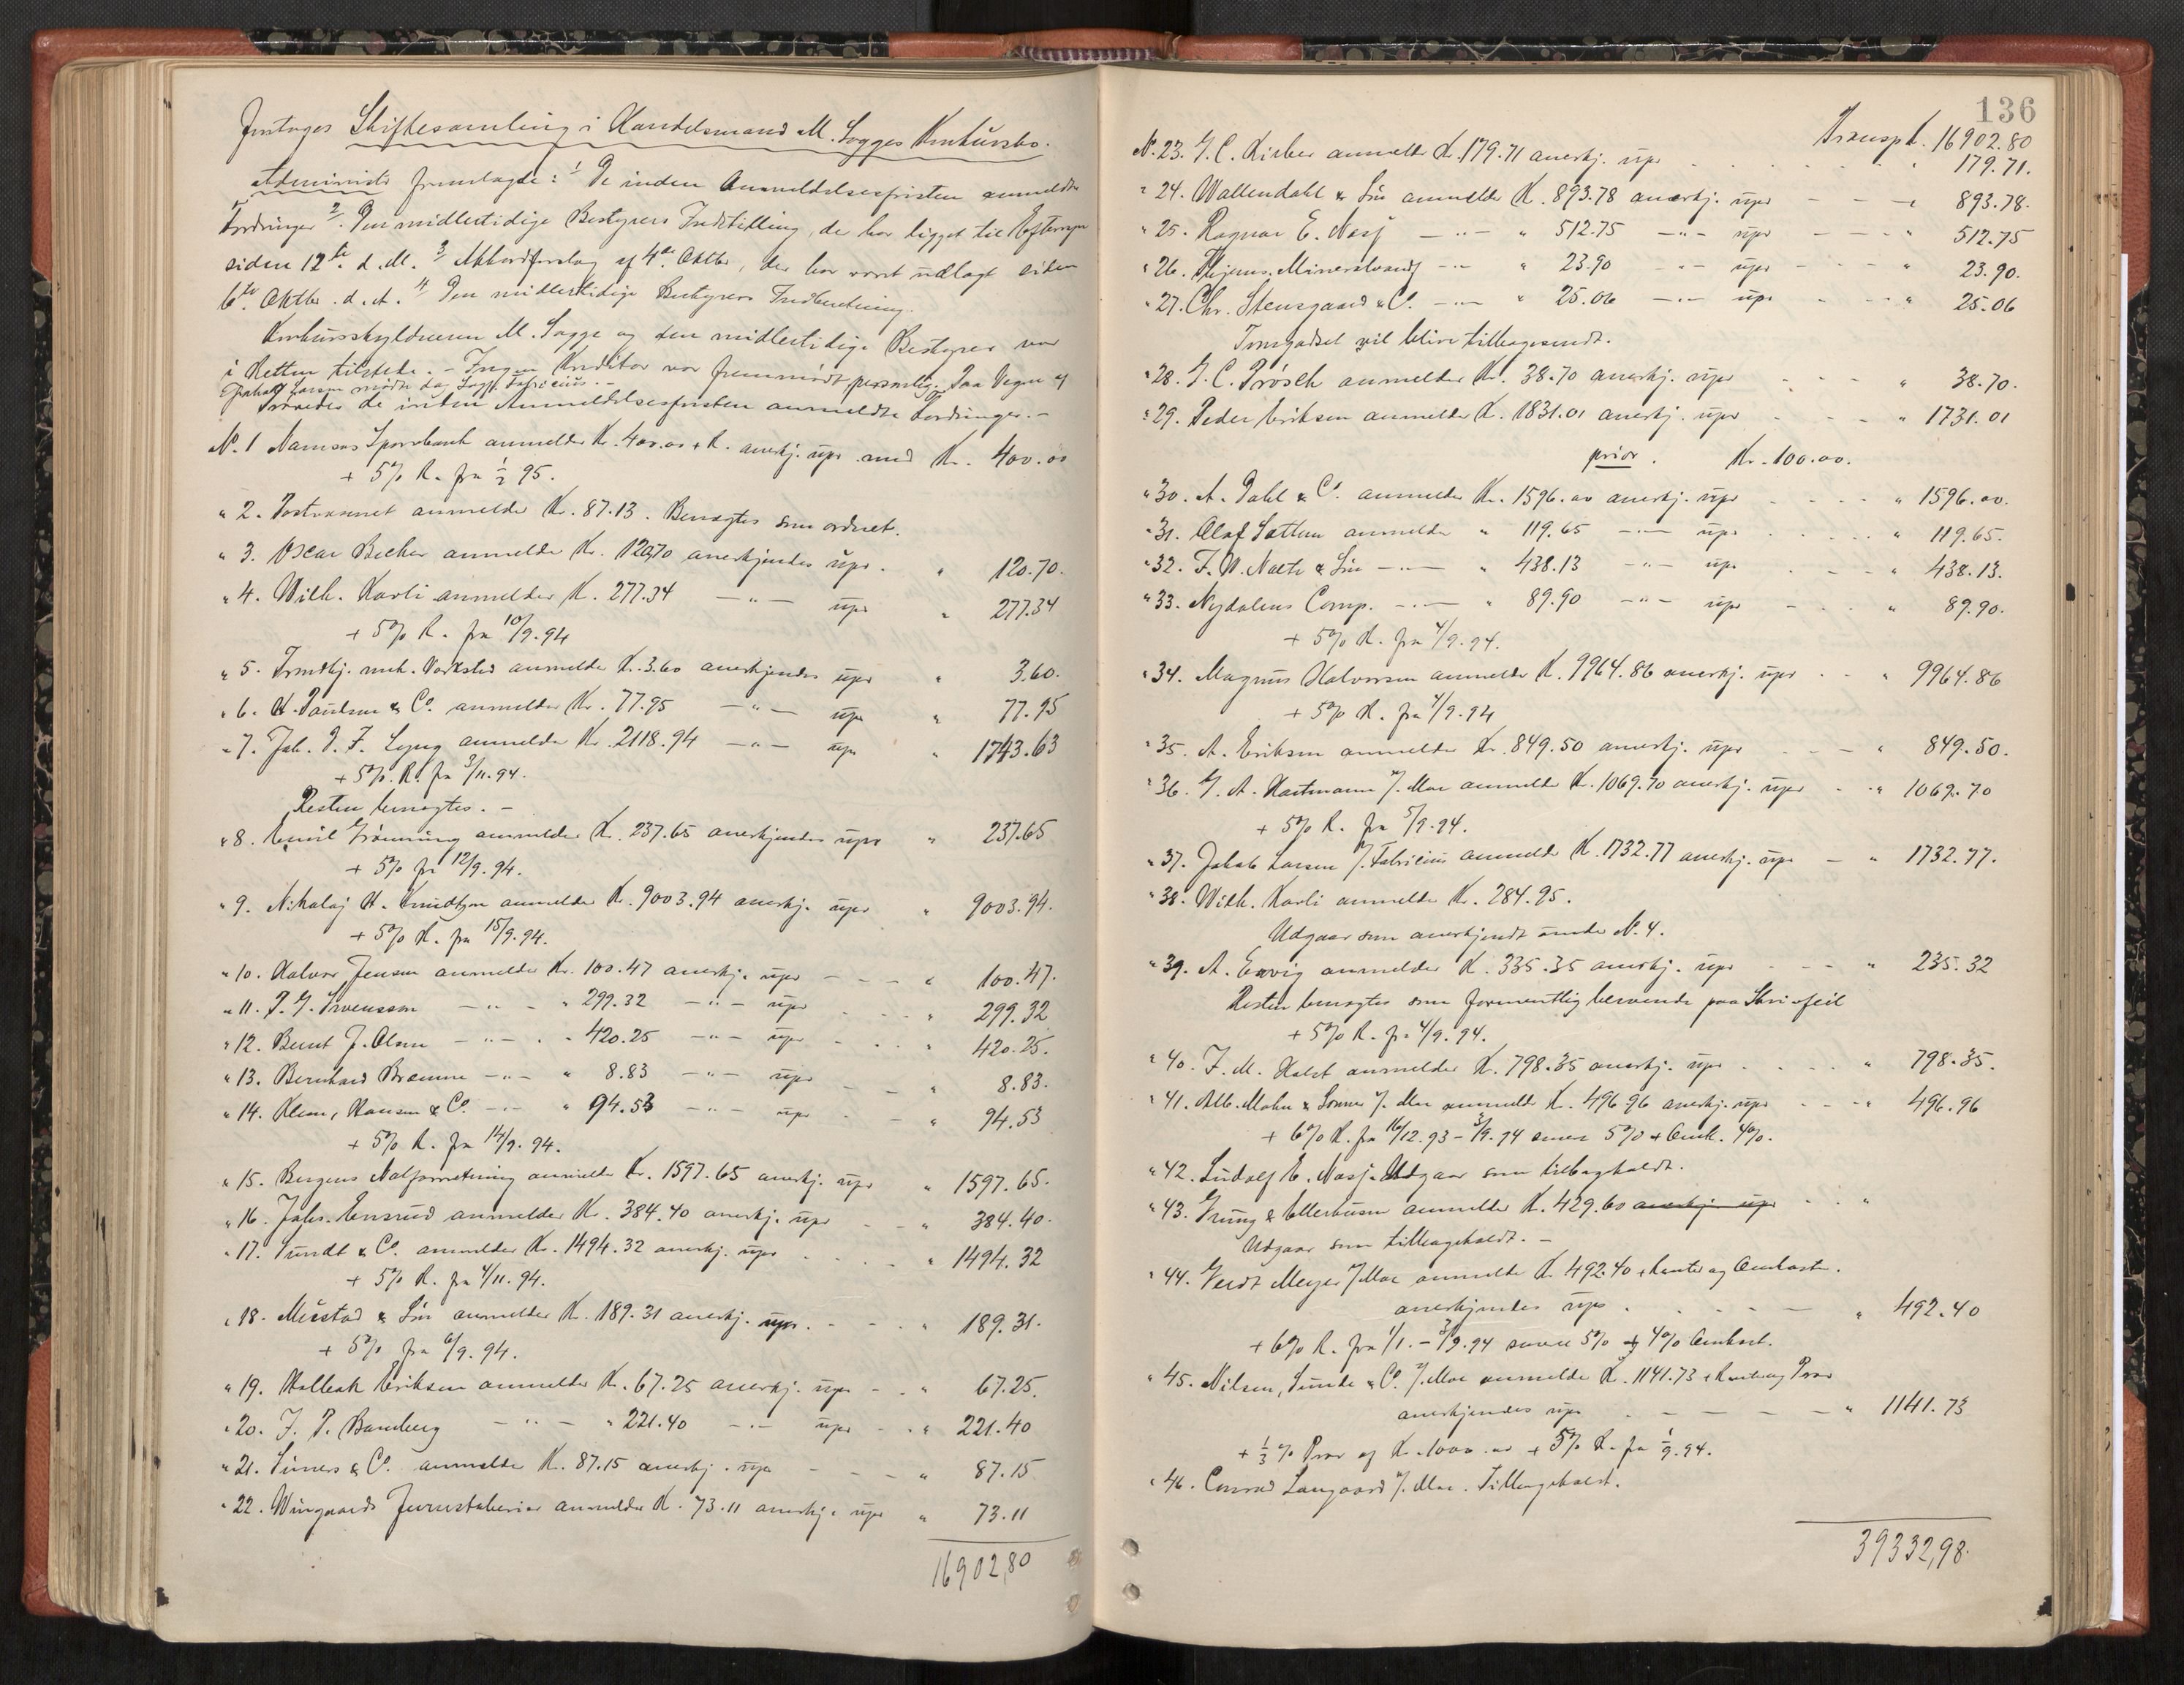 Foretoges Skiftesamling i Handelsmand M. Sagges Konkursbo.
Administr fremlagde: 1/ De inden Anmeldelsesfristen anmeldte
Fordringer 2/ Den midlertidige Bestyrers Indstilling, der har ligget til Eftersyn
siden 12te d. M. 3/ Akkordforslag af 4de Oktbr, der har været udlagt siden
6te Oktbr. d. A. 4/ Den midlertidige Bestyrers Indberetning.
Konkursskyldneren M. Sagge og den midlertidige Bestyrer var
i Retten tilstede. – Ingen Kreditor var fremmødt personlig. Paa Vegne af
Jakob Larsen mødte Sagf. Fabricius. –
Prøvedes de inden Anmeldelsesfristen anmeldte Fordringer. –
No. 1 Namsos Sparebank anmelder Kr. 400.00 + R. anerkj. upr med Kr. 400.00
+ 5% R. fra 1/2 95.
" 2. Postvæsenet anmelder Kr. 87.13. Benægtes som ordnet.
" 3. Oscar Becher anmelder Kr. 120.70 anerkjendes upr. " 120.70.
" 4. Wilh. Karli anmelder K. 277.34 – " – upr " 277.34
+ 5% R. fra 10/9.94
" 5. Trondhj. mek. Værksted anmelder K. 3.60 anerkjendes upr " 3.60.
" 6. Paulsen & Co. anmelder Kr. 77.95 – " – upr " 77.95
" 7. Joh. F. Lyng anmelder Kr. 2118.94 – " – upr " 1743.63
+ 5%. R. fra 3/11.94.
Resten benægtes. –
" 8. Emil Grønning anmelder Kr. 237.65 anerkjendes upr " 237.65
+ 5% fra 12/9.94.
" 9. Nikolaj H. Knudtzon anmelder Kr. 9003.94 anerkj. upr " 9003.94.
+ 5% R. fra 15/9.94.
" 10. Halvor Jensen anmelder Kr. 100.47 anerkj. upr – – " 100.47.
" 11. P. G. Svensson – " – " 299.32 – " – upr . . . " 299.32
" 12. Bernt J. Olsen – " – . " 420.25 – " – upr – . . . " 420.25.
" 13. Bernhard Brænne – " – " 8.83 – " – upr – – " 8.83.
" 14. Klem, Hansen & Co. – " – " 94.53 – " – upr . – " 94.53
+ 5% R. fra 14/9.94.
" 15. Bergens anmelder Kr. 1597.65 anerkj. upr " 1597.65.
" 16. Johs. Ensrud anmelder Kr. 384.40 anerkj. upr – – " 384.40.
" 17. Sundt & Co. anmelder Kr. 1494.32 anerkj. upr . . . " 1494.32
+ 5% R. fra 4/11.94.
" 18. Mustad & Søn anmelder Kr. 189.31 anerkj. upr. – . . " 189.31.
+ 5% fra 6/9.94.
" 19. Halleak Eriksen anmelder K. 67.25 anerkj. upr – . . " 67.25.
" 20. J. P. Bamberg – " – " 221.40 – " – upr – . " 221.40
" 21. Siners & Co. anmelder K. 87.15 anerkj. upr – – – " 87.15
" 22. Wingaards anmelder K. 73.11 anerkj. upr " 73.11
16902,80
136
Transpt. 16902.80
N. 23. J. C. anmelder K. 179.71 anerkj. upr . . . . . " 179.71.
" 24. Wallendahl & Søn anmelder K. 893.78 anerkj. upr – – – " 893.78.
" 25. Ragnar E. Nasj – " – " 512.75 – " – upr – – – " 512.75
" 26. Mineralvandf – " – " 23.90 – " – upr – – – " 23.90.
" 27. Chr. Stensgaard & Co. – " – " 25.06 – " – upr . – – " 25.06
Tomgodset vil blive tilbagesendt.
" 28. J. C. Prösch anmelder Kr. 38.70 anerkj. upr – – – " 38.70.
" 29. Peder Eriksen anmelder K. 1831.01 anerkj. upr – – – " 1731.01
prior. Kr. 100.00.
" 30. A. Dahl & Co. anmelder K. 1596.00 anerkj. upr . . – – " 1596.00.
" 31. Olaf Sattem anmelder " 119.65 – " – upr . . . . " 119.65.
" 32. F. W. & Søn – " – " 438.13 – " – upr . – – " 438.13.
" 33. Nydalens Comp. – " – " 89.90 – " – upr – . . " 89.90.
+ 5% R. fra 4/9.94.
" 34. Magnus Halvorsen anmelder K. 9964.86 anerkj. upr . – " 9964.86
+ 5% R. fra 4/9.94
" 35. A. Eriksen anmelder Kr. 849.50 anerkj. upr – – – " 849.50.
" 36. J. A. Hartmann v/ Moe anmelder K. 1069.70 anerkj. upr – . " 1069.70
+ 5% R. fra 5/9.94.
" 37. Jakob Larsen v/ Fabricius anmelder K. 1732.77 anerkj. upr – " 1732.77.
" 38. Wilh. Karli anmelder Kr. 284.95.
Udgaar som anerkjendt under N. 4.
" 39. A. Envig anmelder K. 335.35 anerkj. upr – – – " 235.32
Resten benægtes som formentlig beroende paa Skrivfeil
+ 5% R. fra 4/9.94.
" 40. F. M. Holst anmelder K. 798.35 anerkj. upr . . . . " 798.35.
" 41. Alb. Mohn & Sønner v/ Moe anmelder K. 496.96 anerkj. upr . – – " 496.96
+ 6% R. fra 16/12.93 – 3/9.94 senere 5% + Omk. 4%.
" 42. Ludolf E. Nasj. Udgaar som tilbagholdt.
" 43. Grung & Ellerhusen anmelder K. 429.60 anerkj. upr . . "
Udgaar som tilbageholdt. –
" 44. Gerdt Meyer v/ Moe anmelder K. 492.40 + Renter og Omkostn.
anerkjendes upr . . – . – – " 492.40
+ 6% R. fra 1/1. – 3/9.94 senere 5% + 4% Omkost.
" 45. Nilsen, Sunde & Co. v/ Moe anmelder K. 1141.73 + Rente og Prov
anerkjendes upr . – – – – – " 1141.73
+ 1/3 % Prov af K. 1000.00 + 5% R. fra 1/9.94.
" 46. Conrad Langaard v/ Moe. Tilbageholdt.
39332,98.